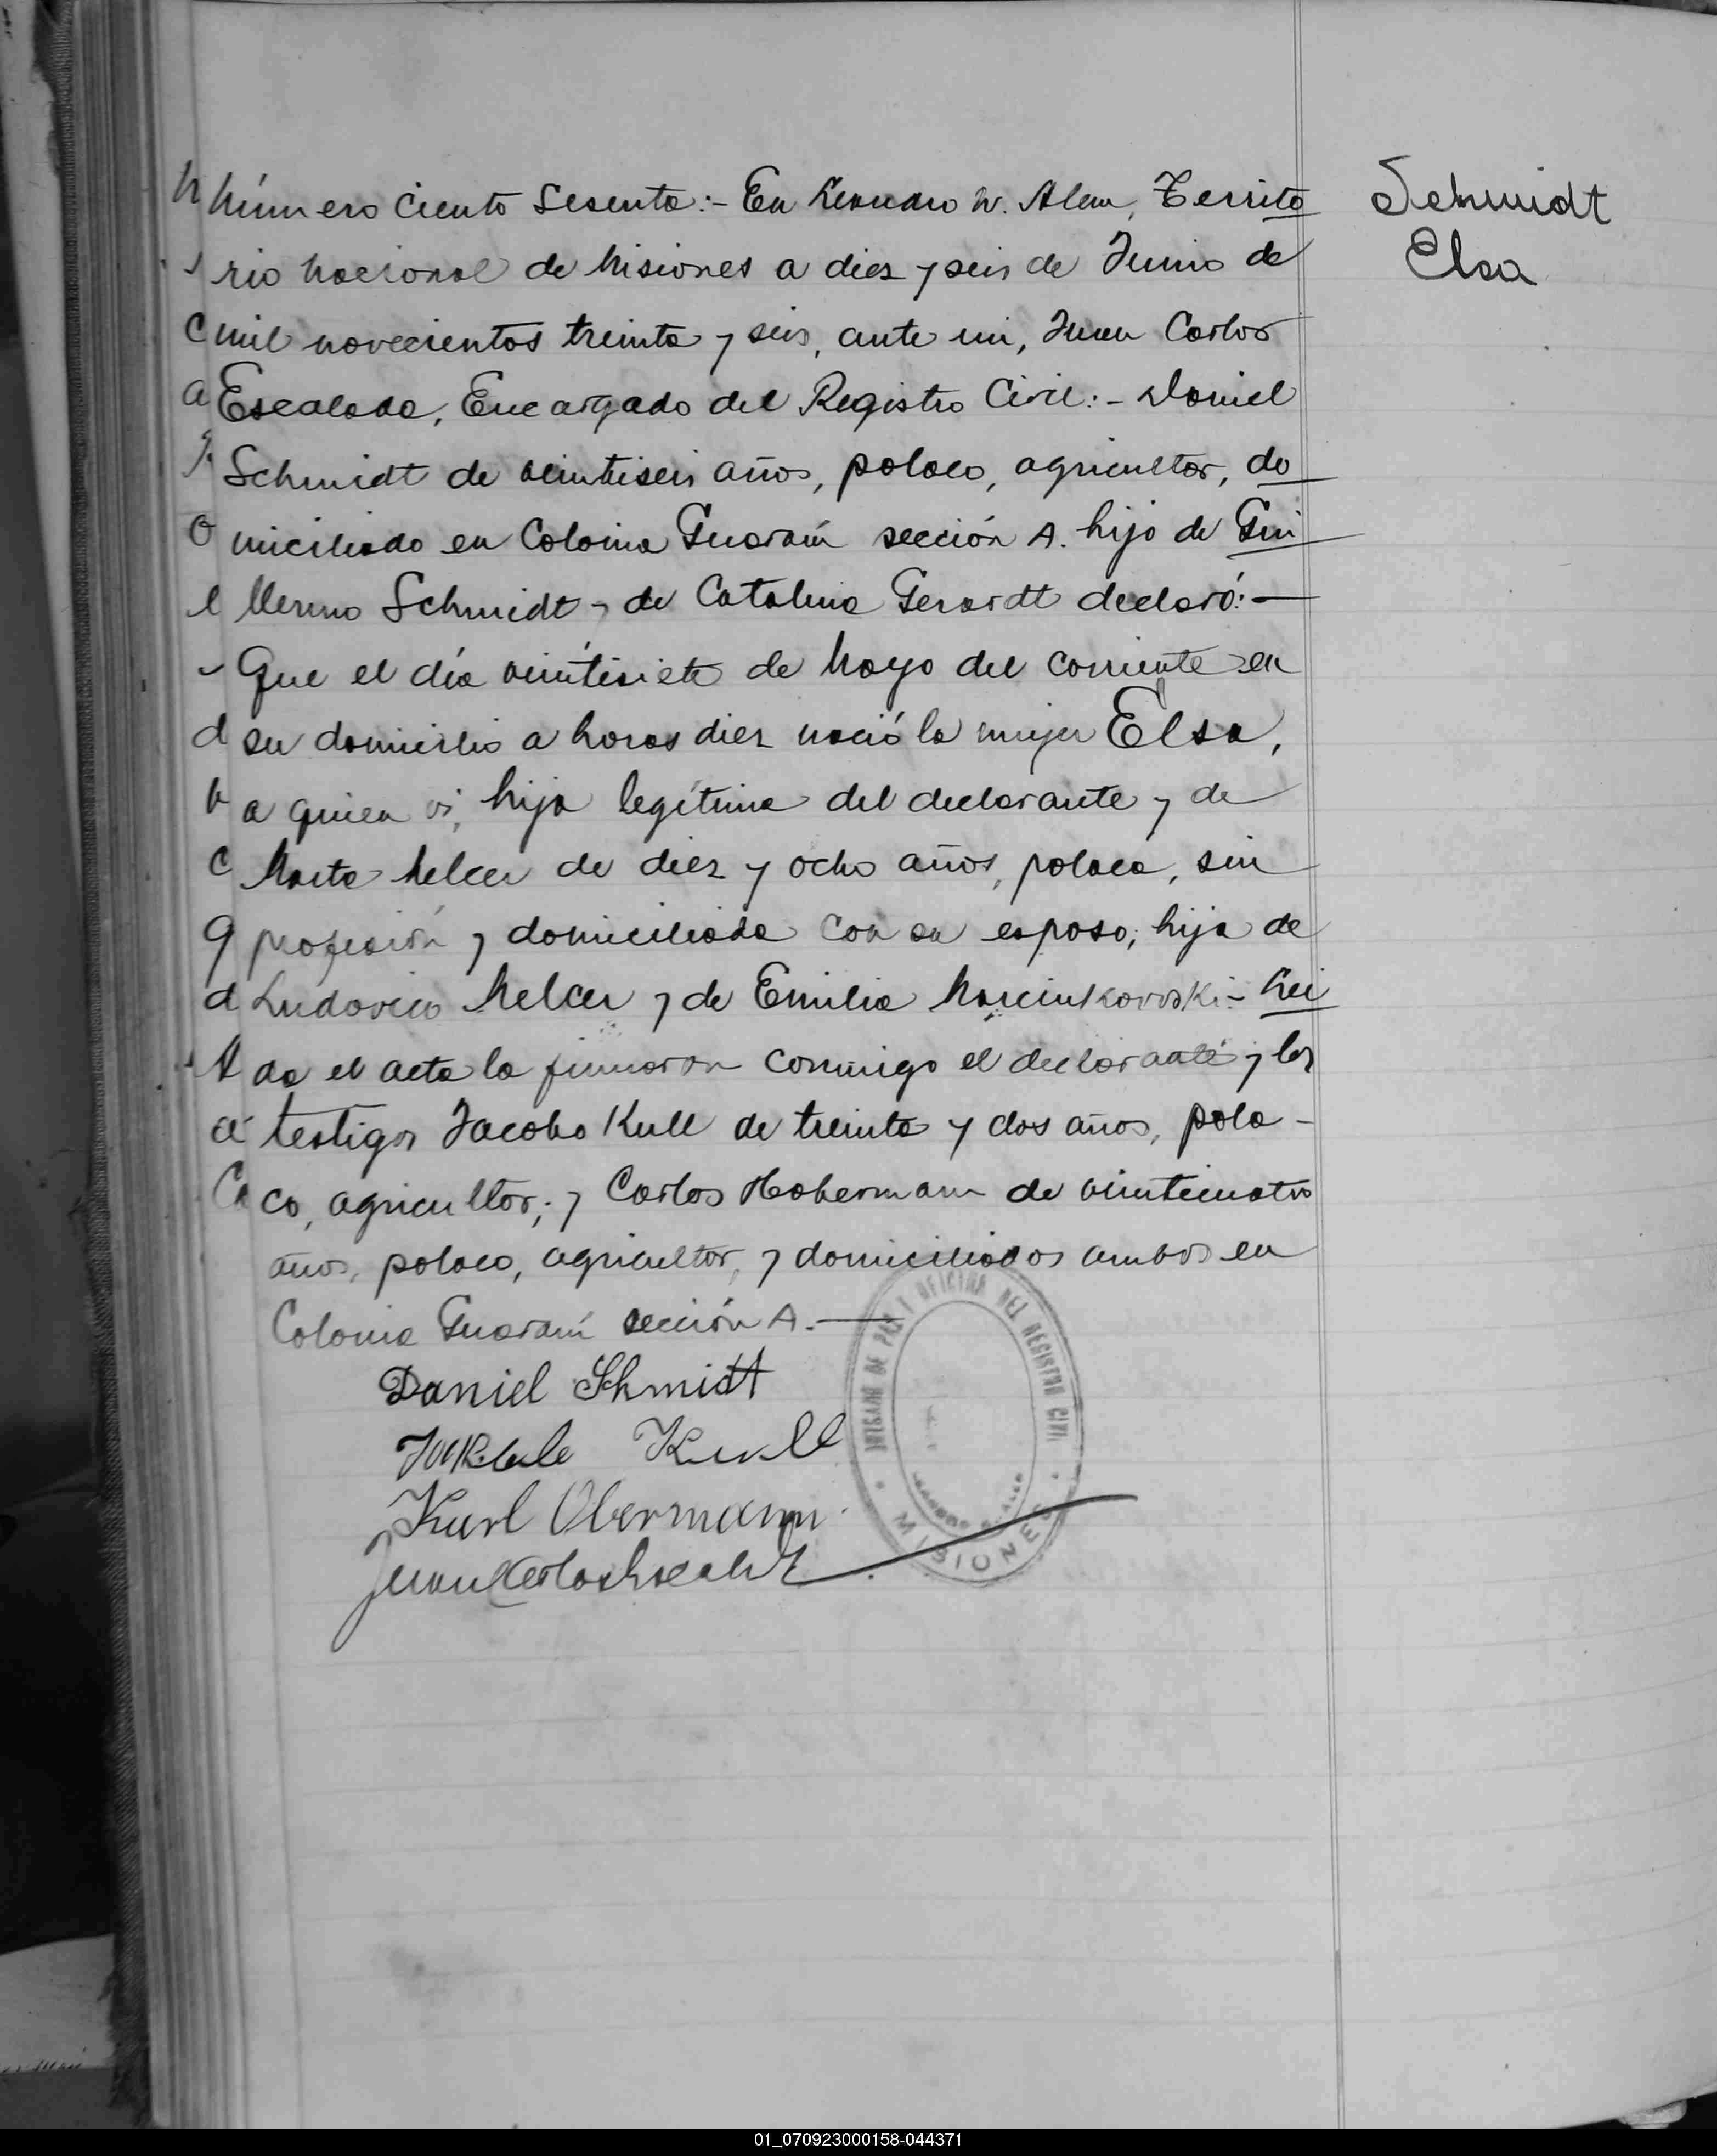 Schmidt
Elsa
Número Ciento Sesenta:- En Leandro N. Alem, Territo
rio Nacional de Misiones a diez y seis de Junio de
mil novecientos treinta y seis, ante mi, Juan Carlos
Escalada, Encargado del Registro Civil:- Daniel
Schmidt de veintiseis años, polaco, agricultor, do
miciliado en Colonia Guaraní sección A. hijo de Gui
llermo Schmidt y de Catalina Gerardt declaró:-
Que el día veintisiete de Mayo del corriente en
su domicilio a horas diez nació la mujer Elsa,
a quien vi, hija legítima del declarante y de
Marta Melcer de diez y ocho años, polaca, sin
profesión y domiciliada con su esposo; hija de
Ludovico Melcer y de Emilia Marcinkowski- Lei
da el acta la firmaron conmigo el declarante y los
testigos Jacobo Kull de treinta y dos años, pola-
co, agricultor; y Carlos Hobermann de veinticuatro
años, polaco, agricultor, y domiciliados ambos en
Colonia Guaraní sección A.-
Daniel Schmidt
Kull
Karl Obermann
Juan Carlos Escalada
JUZGADO DE PAZ Y OFICINA DEL REGISTRO CIVIL
MISIONES
01_070923000158-044371